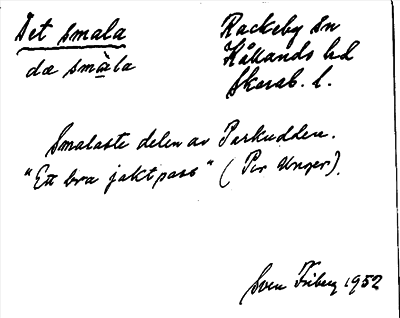 Det smala
da smàla
Rackeby sn
Kållands hd
Skarab. l.
Smalaste delen av Parkudden.
"Ett bra jaktpass" (Per Unger).
Sven Friberg 1952